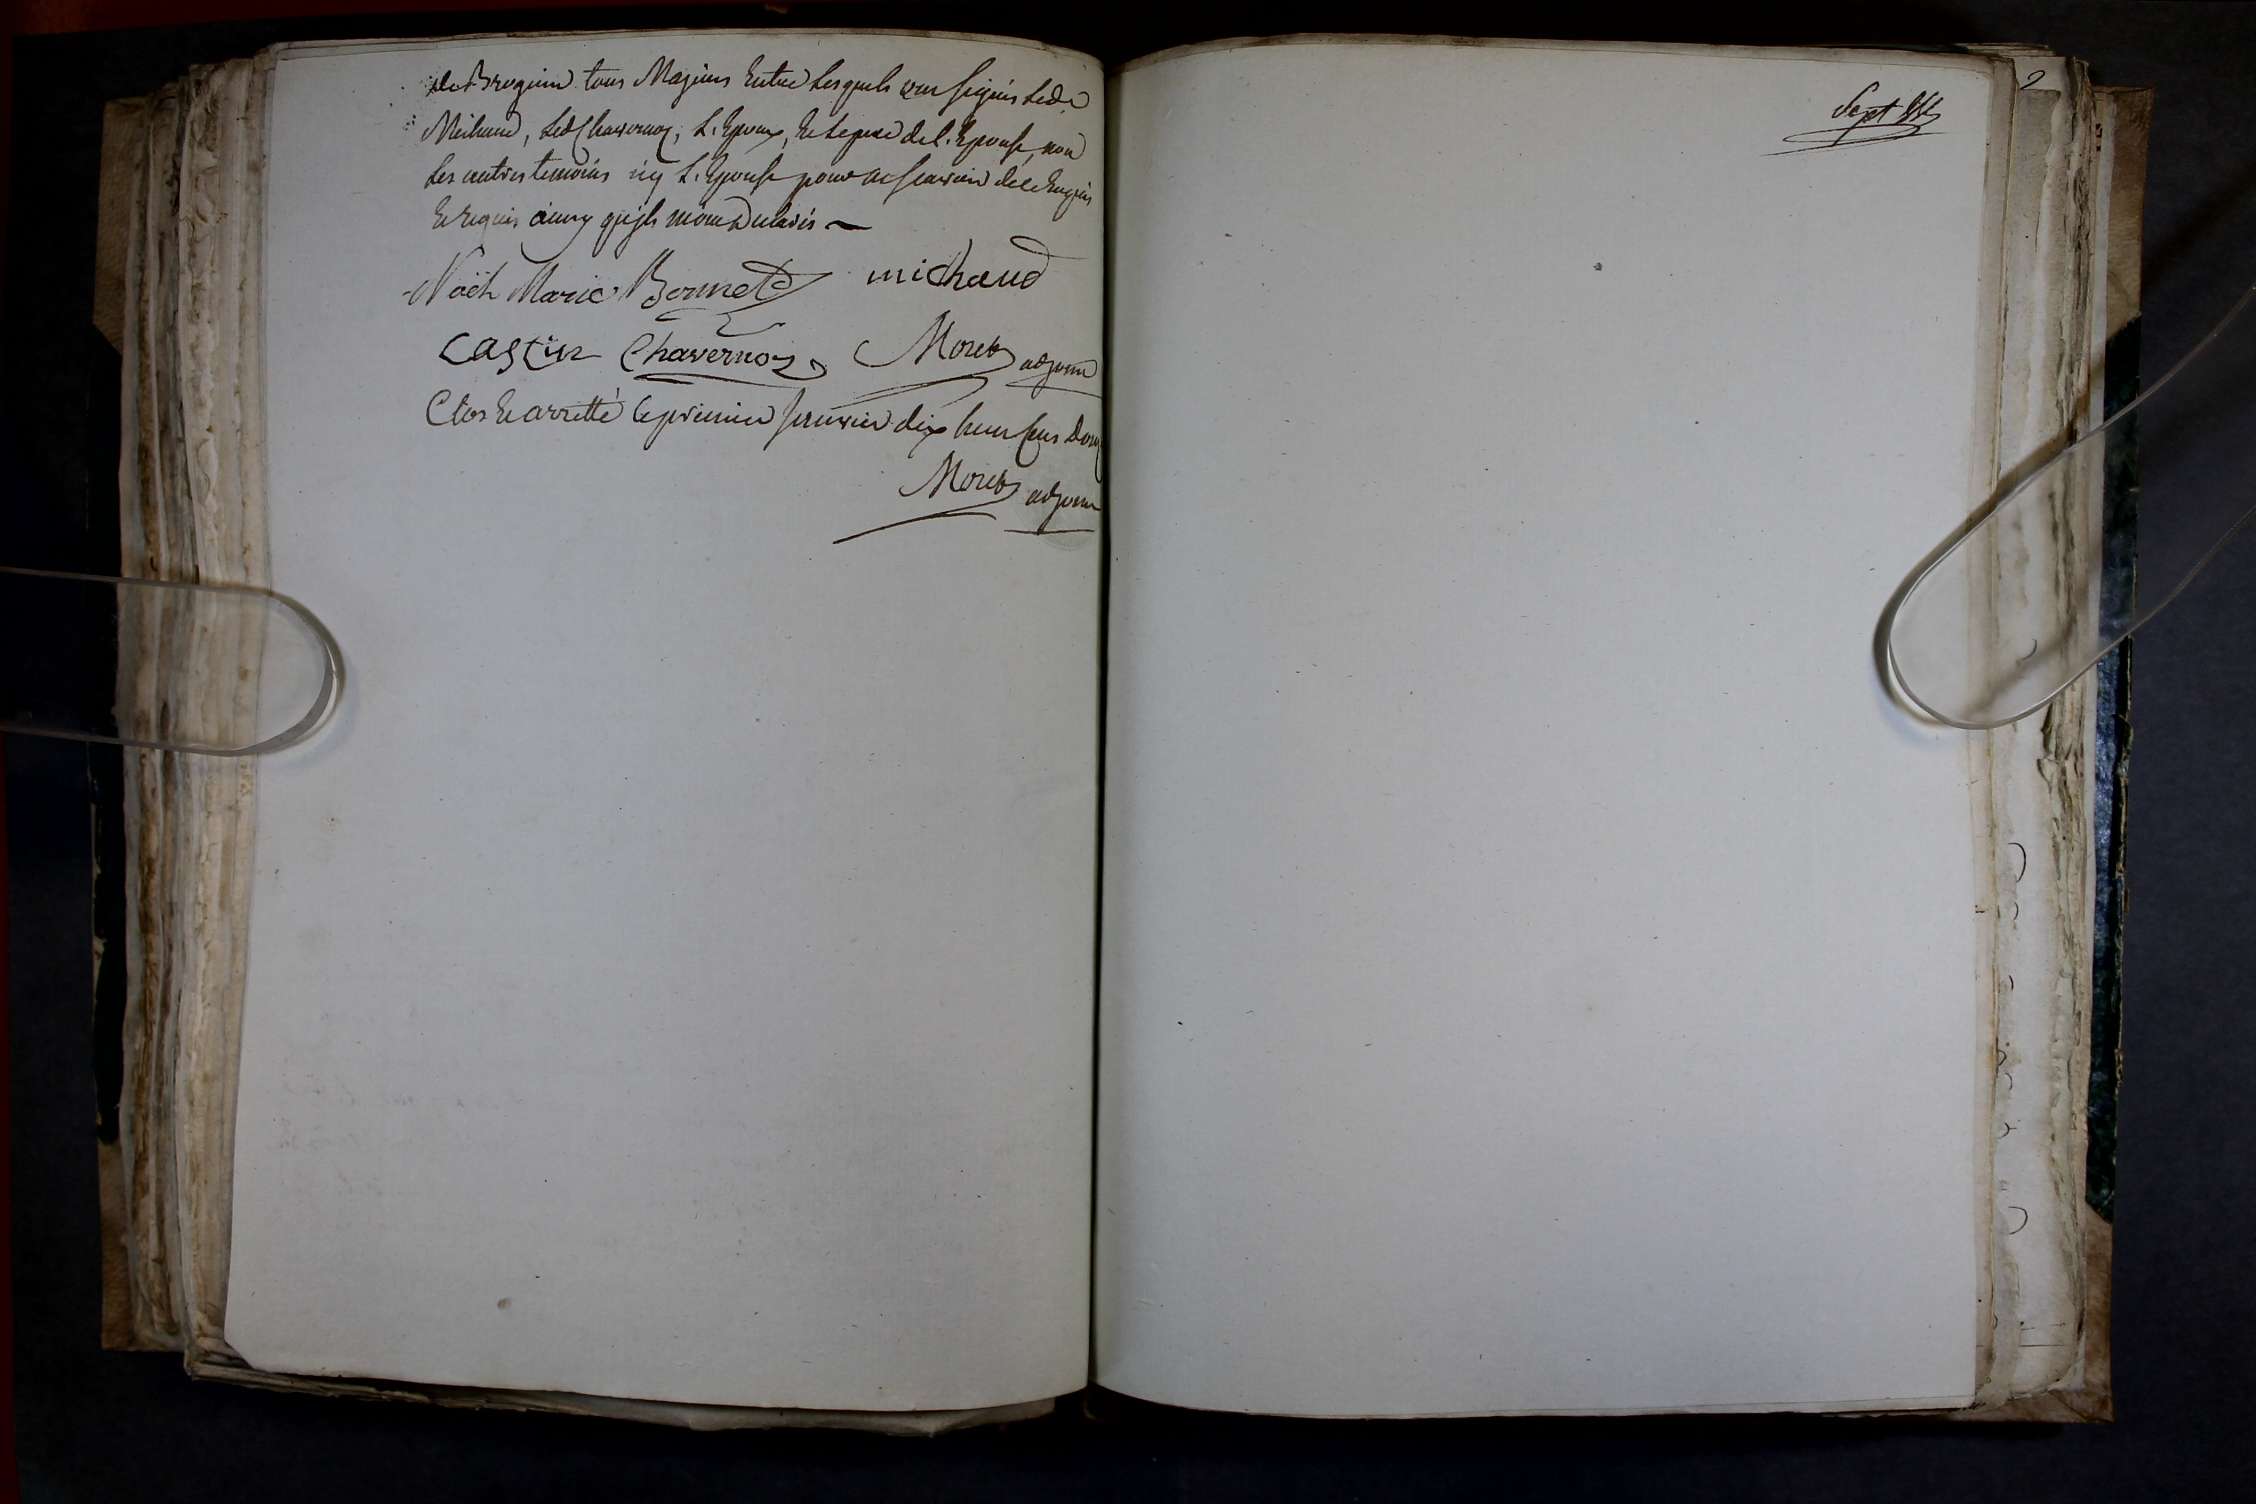 de Bregnier tous Majeurs Entre Lesquels ont signés Led.
Michaud, Led Chavernoz, L'Epoux, Et Le pere de L'Epouse, non
Les autres temoins niy L'Epouse pour ne scavoir de ce Enquis
Et Requis ainsy qu'ils mont Declarés
Noël Marie Bonnet michaud
Castin Chavernoz Moret adjoint
Clos Et arretté le premier Janvier dix huit cens Douze
Moret adjoint
Sept
2